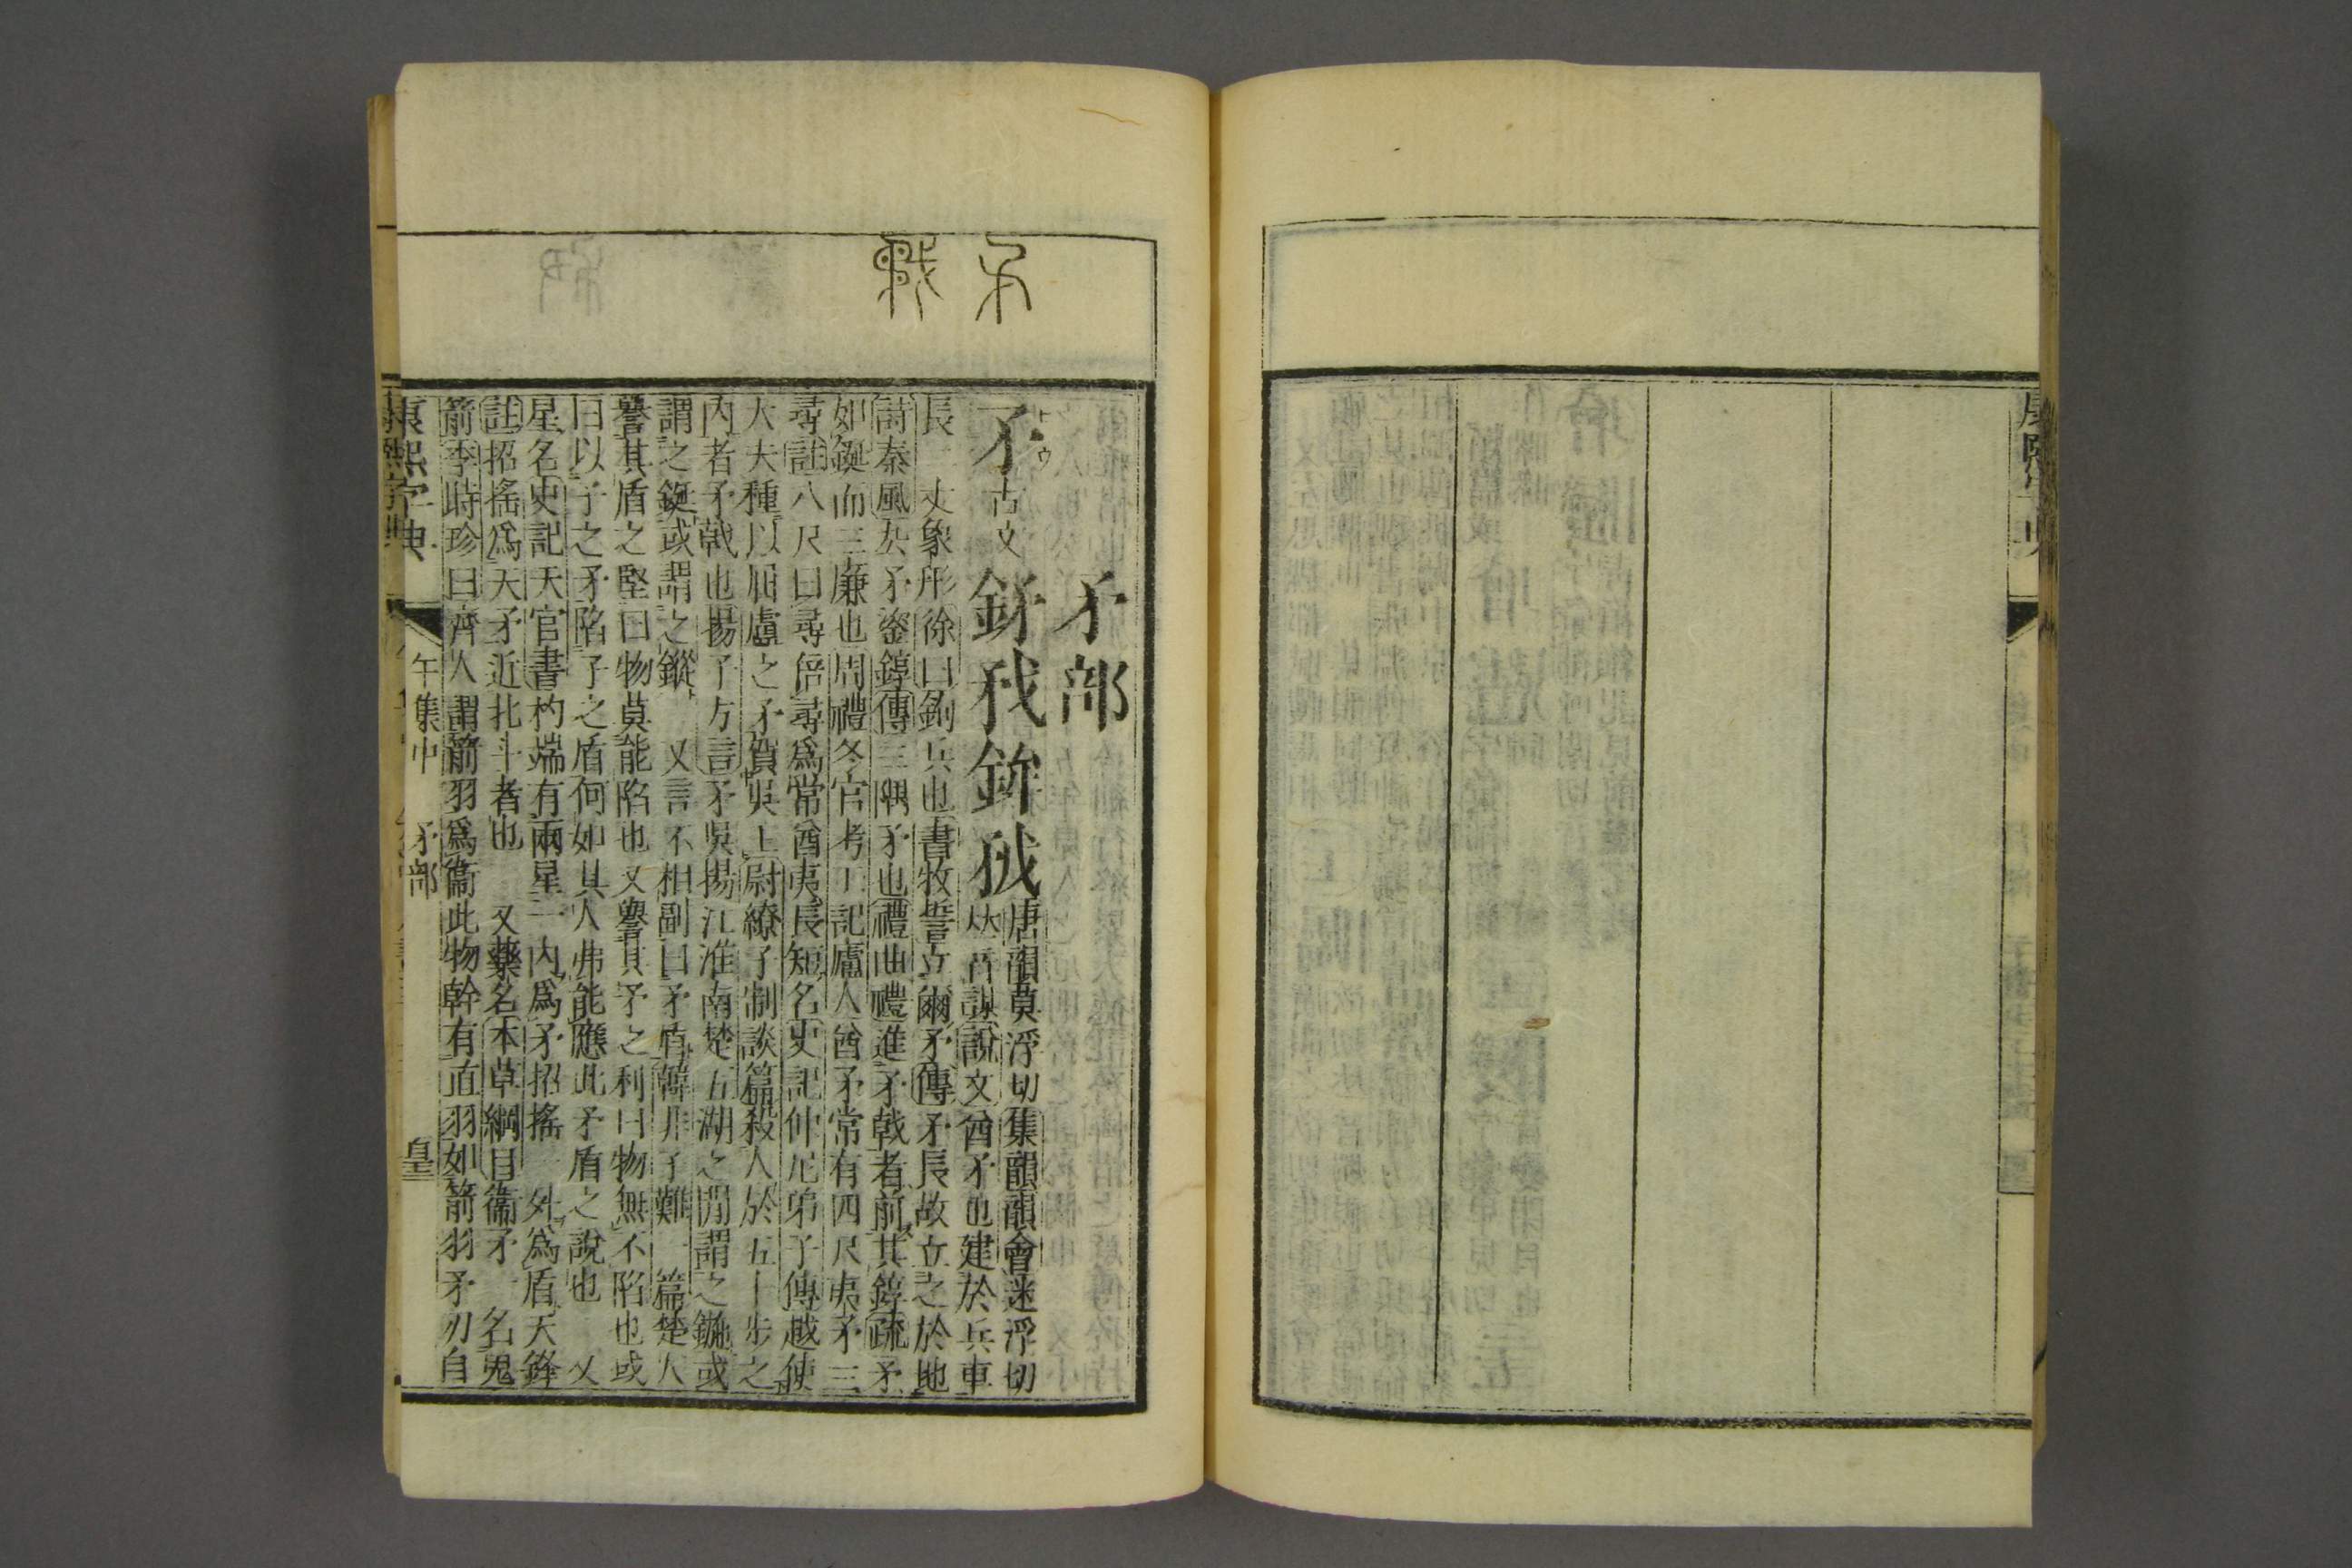 康熙字典
矛部
矛古文𨥨𢦧鉾𢦵唐韻莫浮切集韻韻會迷浮切
𠀤音謀說文酋矛也建於兵車
長二丈象形徐曰鉤兵也書牧誓立爾矛傳矛長故立之於地
詩秦風厹矛鋈錞傳三隅矛也禮曲禮進矛戟者前其錞疏矛
如鋋而三廉也周禮冬官考工記廬人酋矛常有四尺夷矛三
尋註八尺曰尋倍尋爲常酋夷長短名史記仲尼弟子傳越使
大夫種以屈盧之矛賀吳王尉繚子制談篇殺人於五十步之
內者矛戟也揚子方言矛吳揚江淮南楚五湖之閒謂之鍦或
謂之鋋或謂之鏦　又言不相副曰矛盾韓非子難一篇楚人
譽其盾之堅曰物莫能陷也又譽其矛之利曰物無不陷也或
曰以子之矛陷子之盾何如其人弗能應此矛盾之說也　又
星名史記天官書杓端有兩星一內爲矛招搖一外爲盾天鋒
註招搖爲天矛近北斗者也　又藥名本草綱目衞矛一名鬼
箭李時珍曰齊人謂箭羽爲衞此物幹有直羽如箭羽矛刃自
康熙字典　午集中　矛部　皇